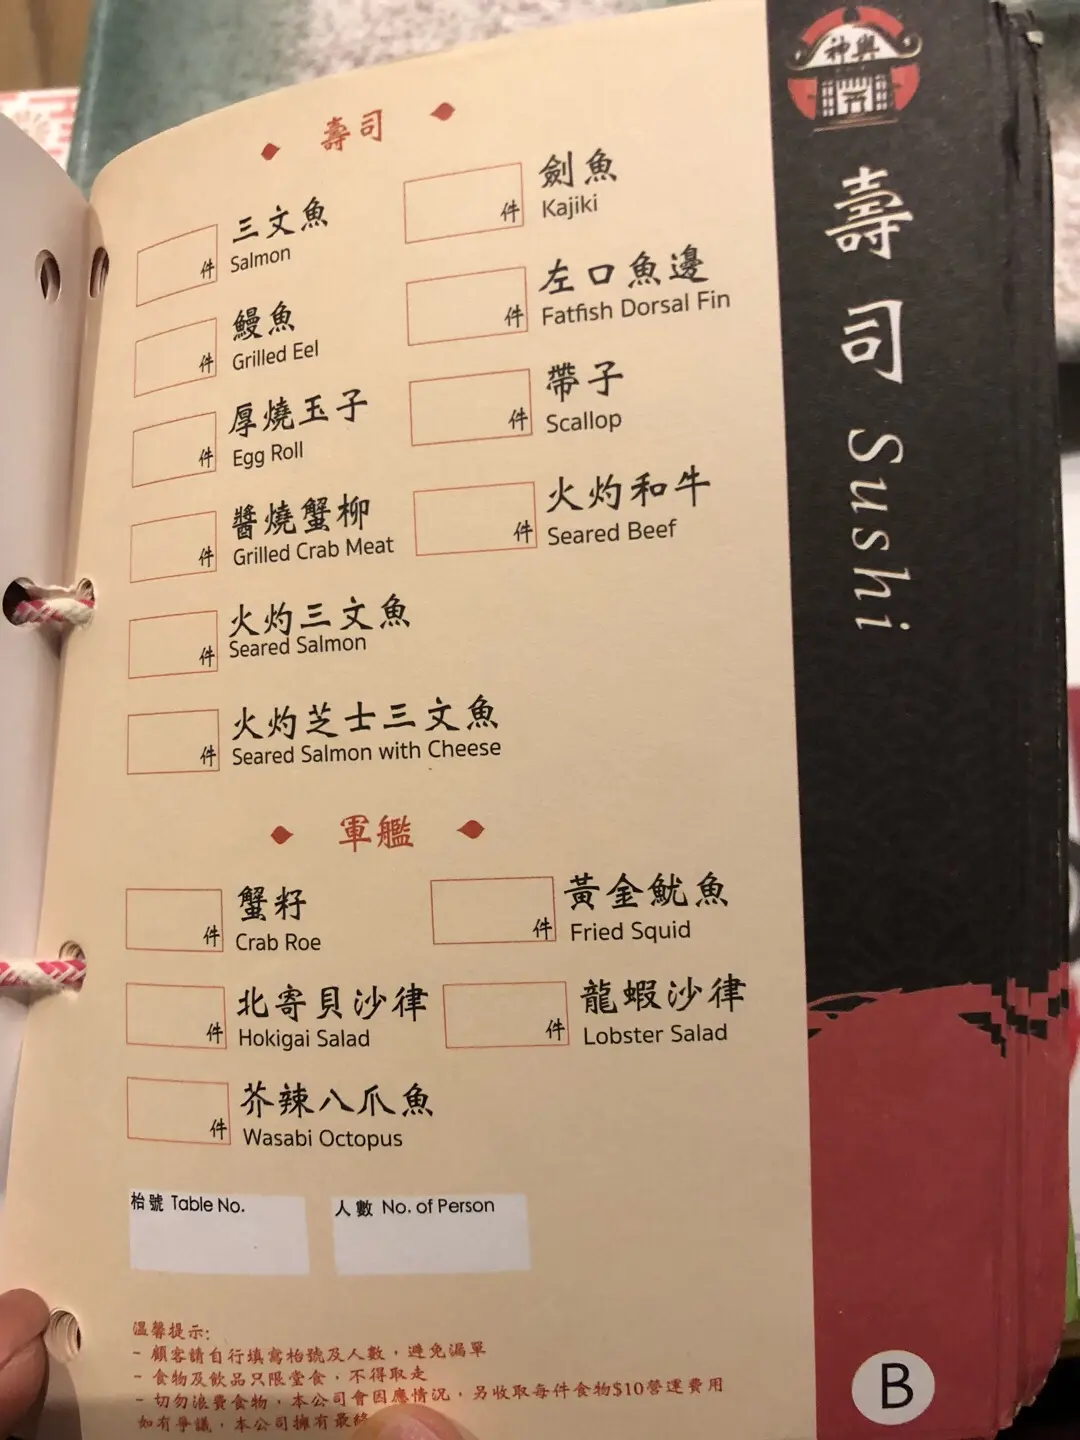 神輿
壽司 Sushi
壽司
件
三文魚
Salmon
件
鰻魚
Grilled Eel
件
厚燒玉子
Egg Roll
件
醬燒蟹柳
Grilled Crab Meat
件
火灼三文魚
Seared Salmon
件
火灼芝士三文魚
Seared Salmon with Cheese
件
劍魚
Kajiki
件
左口魚邊
Fatfish Dorsal Fin
件
帶子
Scallop
件
火灼和牛
Seared Beef
軍艦
件
蟹籽
Crab Roe
件
北寄貝沙律
Hokigai Salad
件
芥辣八爪魚
Wasabi Octopus
件
黃金魷魚
Fried Squid
件
龍蝦沙律
Lobster Salad
枱號 Table No.
人數 No. of Person
溫馨提示:
- 顧客請自行填寫枱號及人數，避免漏單
- 食物及飲品只限堂食，不得取走
- 切勿浪費食物，本公司會因應情況，另收取每件食物$10營運費用
如有爭議，本公司擁有最終
B